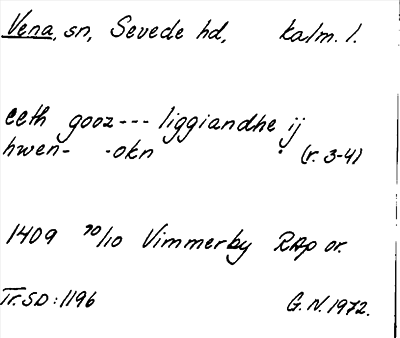 Vena, sn, Sevede hd, Kalm. l.
eeth gooz --- liggiandhe ij
hwen- -okn (r. 3-4)
1409 30/10 Vimmerby RAp or.
Tr. SD: 1196 G. N. 1972.